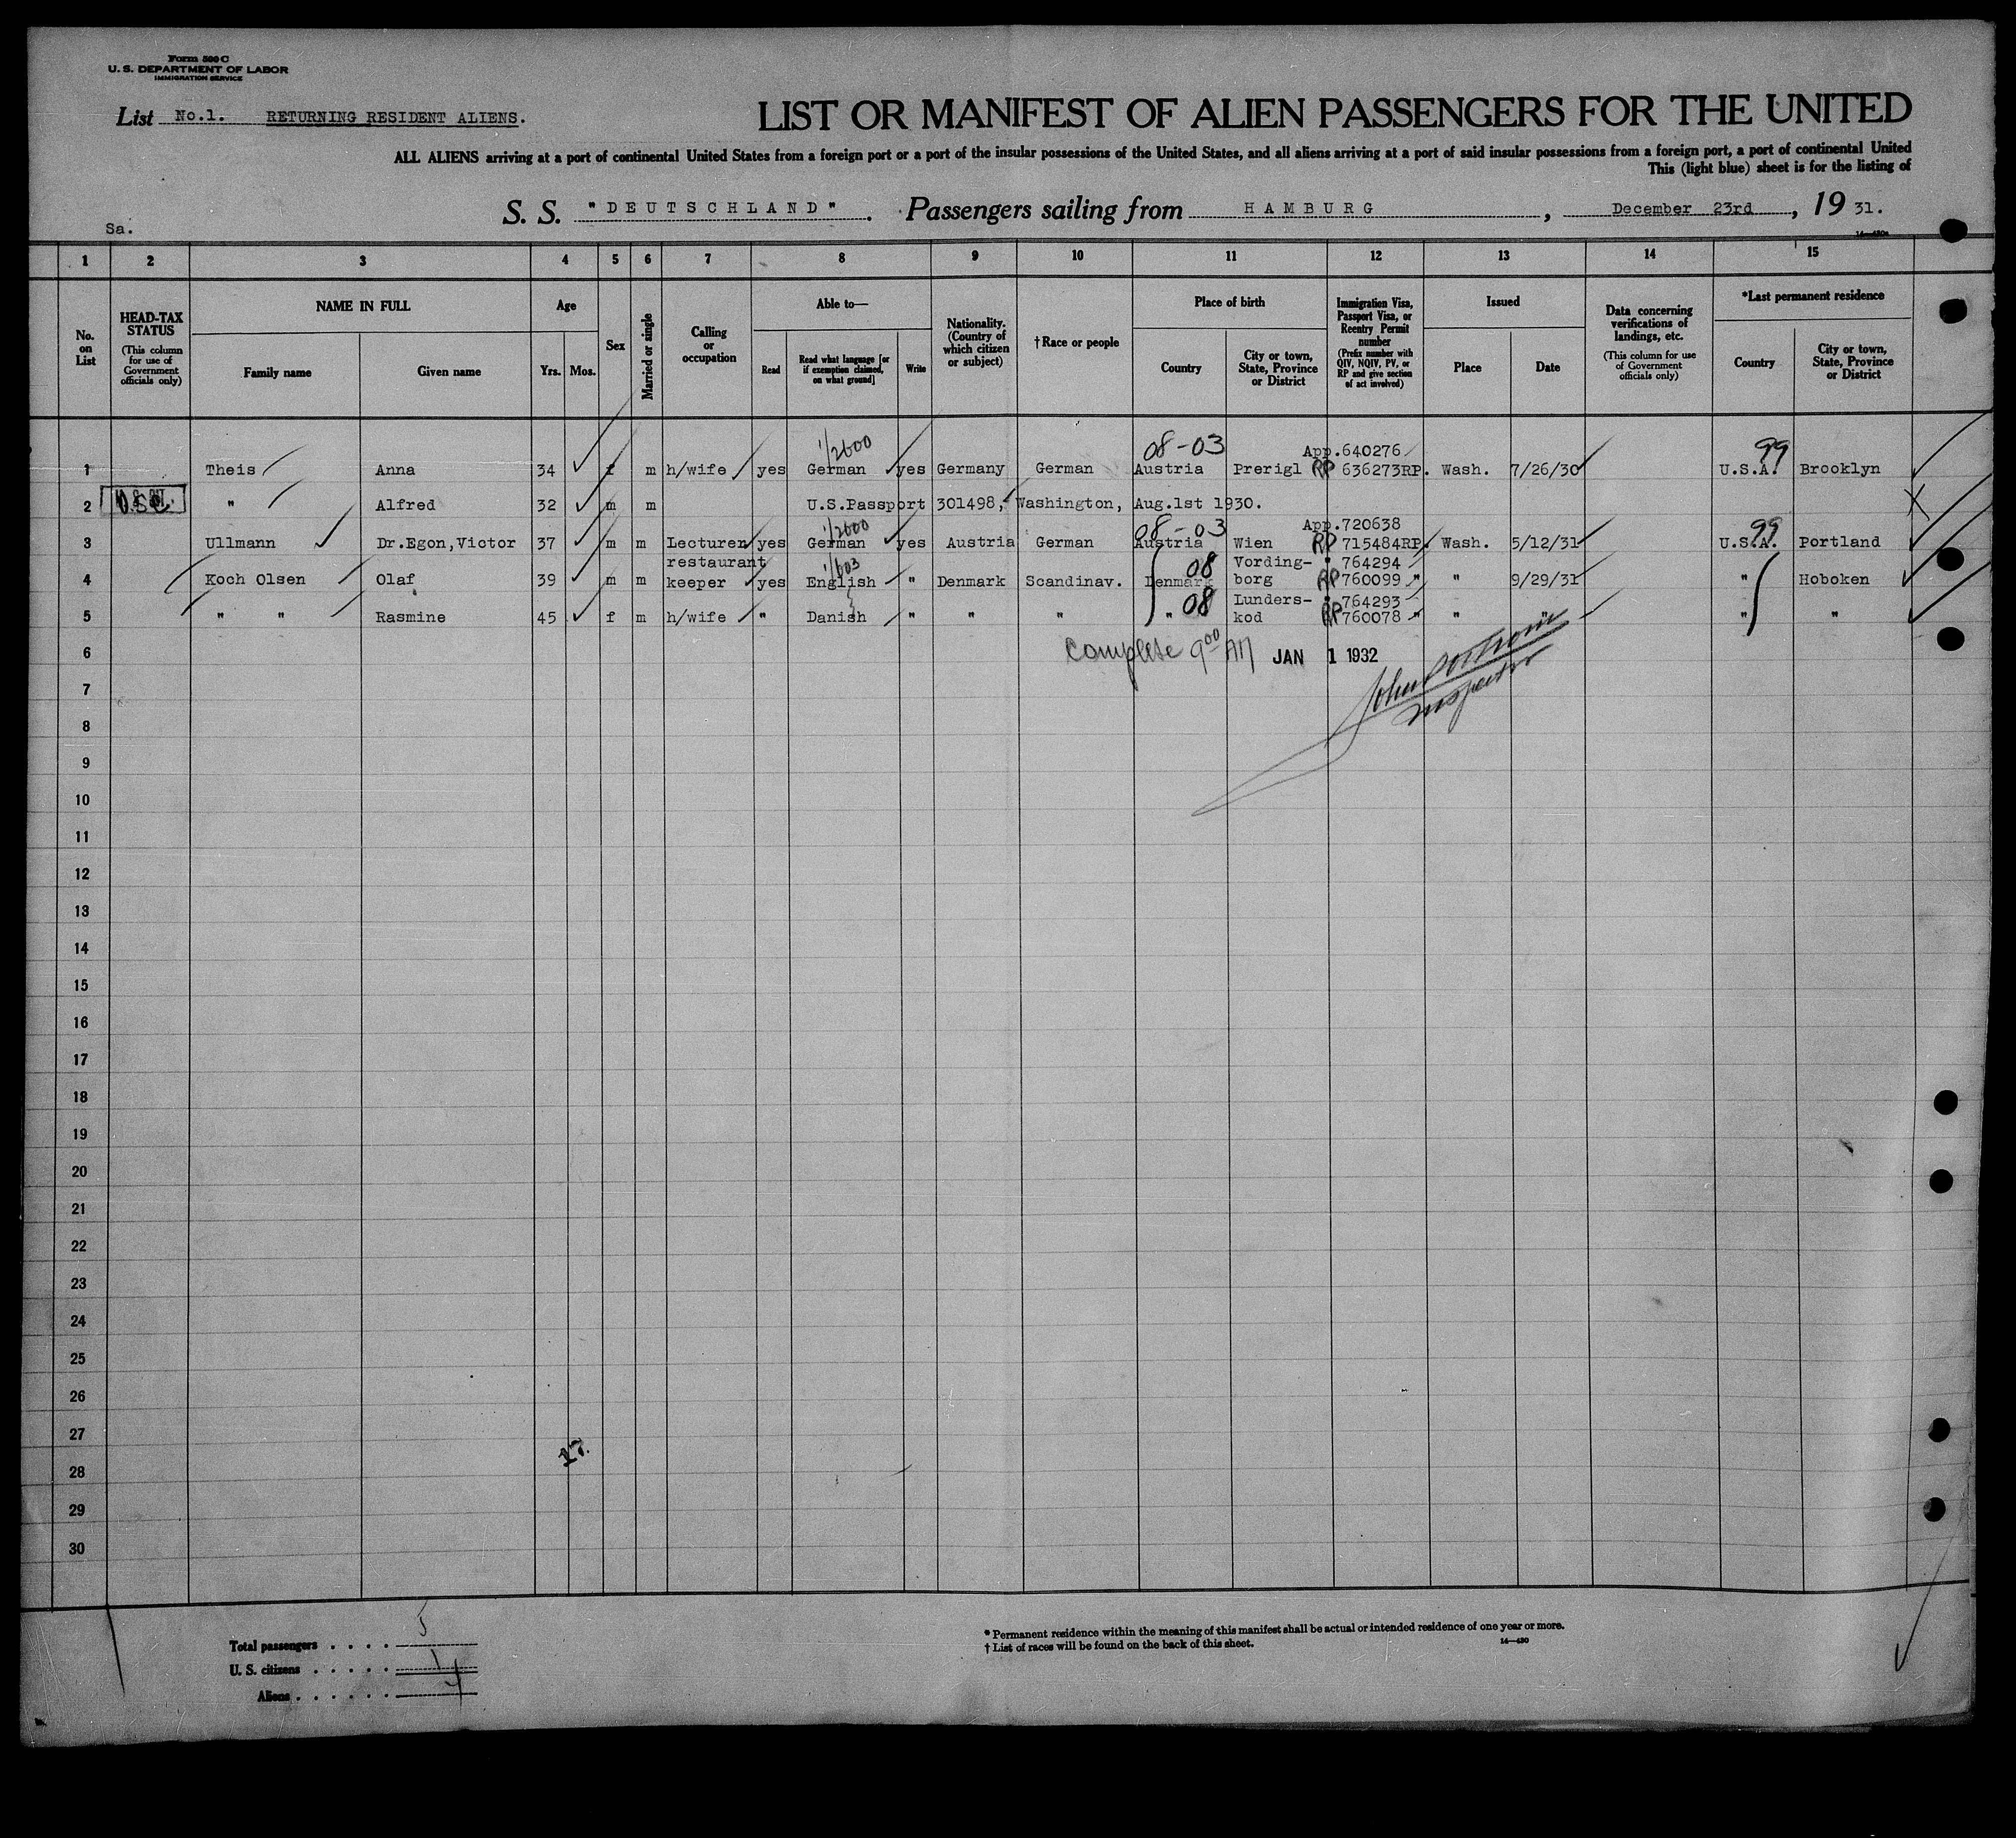 Form 500 C
U. S. DEPARTMENT OF LABOR
IMMIGRATION SERVICE
List No.1. RETURNING RESIDENT ALIENS.
LIST OR MANIFEST OF ALIEN PASSENGERS FOR THE UNITED
ALL ALIENS arriving at a port of continental United States from a foreign port or a port of the insular possessions of the United States, and all aliens arriving at a port of said insular possessions from a foreign port, a port of continental United
This (light blue) sheet is for the listing of
S. S. "DEUTSCHLAND". Passengers sailing from HAMBURG, December 23rd, 19 31.
Sa.
1 2 3 4 5 6 7 8 9 10 11 12 13 14 15
No. on List
HEAD-TAX STATUS (This column for use of Government officials only)
NAME IN FULL
Family name Given name
Age
Yrs. Mos.
Sex
Married or single
Calling or occupation
Able to—
Read Read what language [or if exemption claimed, on what ground] Write
Nationality. (Country of which citizen or subject)
† Race or people
Place of birth
Country City or town, State, Province or District
Immigration Visa, Passport Visa, or Reentry Permit number (Prefix number with QIV, NQIV, PV, or RP and give section of act involved)
Issued
Place Date
Data concerning verifications of landings, etc. (This column for use of Government officials only)
*Last permanent residence
Country City or town, State, Province or District
1/2600 08-03 App.640276 99
1 Theis Anna 34 f m h/wife yes German yes Germany German Austria Prerigl RP 636273RP. Wash. 7/26/30 U.S.A. Brooklyn
2 " Alfred 32 m m U.S.Passport 301498, Washington, Aug.1st 1930. X
1/2600 08-03 App.720638 99
3 Ullmann Dr.Egon,Victor 37 m m Lecturer yes German yes Austria German Austria Wien RP 715484RP. Wash. 5/12/31 U.S.A. Portland
restaurant 1/603 08 Vording- " 764294
4 Koch Olsen Olaf 39 m m keeper yes English " Denmark Scandinav. Denmark borg RP 760099 " " 9/29/31 " Hoboken
08 Lunders- " 764293
5 " " Rasmine 45 f m h/wife " Danish " " " " kod RP 760078 " " " " "
6 Complete 9 00 AM JAN 1 1932
Inspector
7
8
9
10
11
12
13
14
15
16
17
18
19
20
21
22
23
24
25
26
27
17.
28
29
30
Total passengers . . . . 5
U. S. citizens . . . . . 1
Aliens . . . . . . 4
* Permanent residence within the meaning of this manifest shall be actual or intended residence of one year or more.
† List of races will be found on the back of this sheet.
14—430